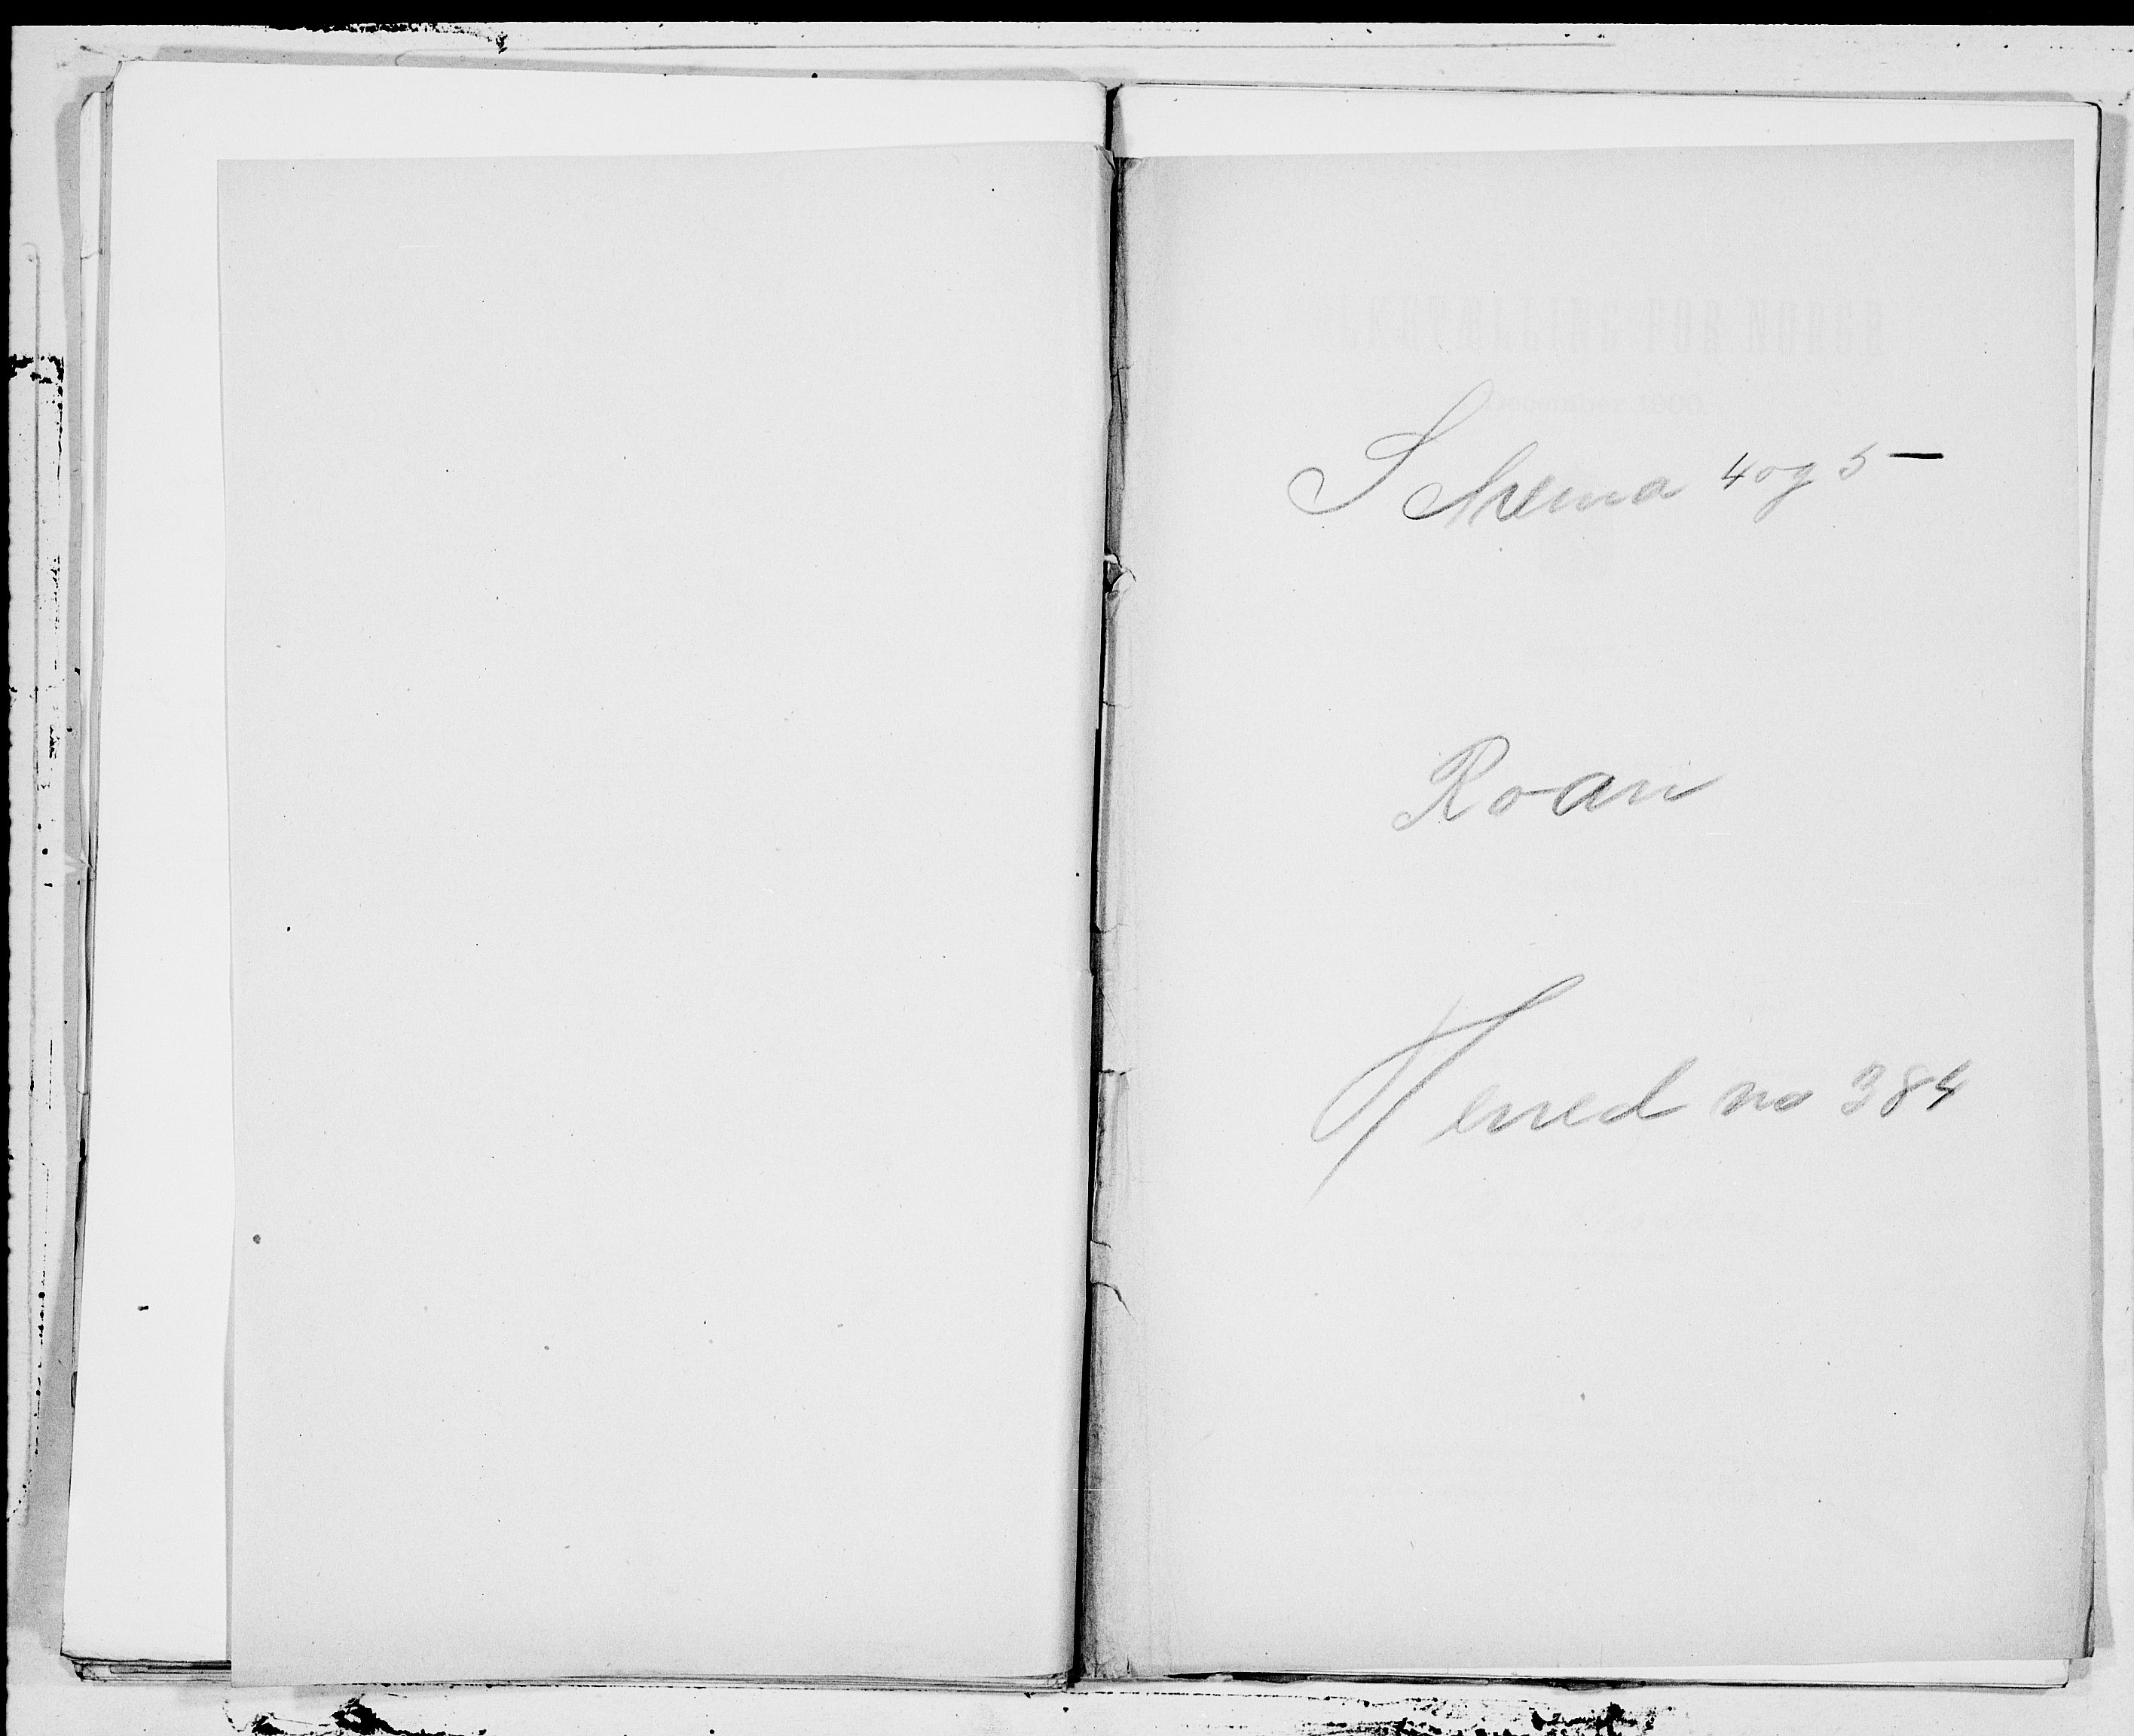 LKETÆLLING FOR NORGE
December 1900.
Schema 4 og 5
Roan
Herred no 384